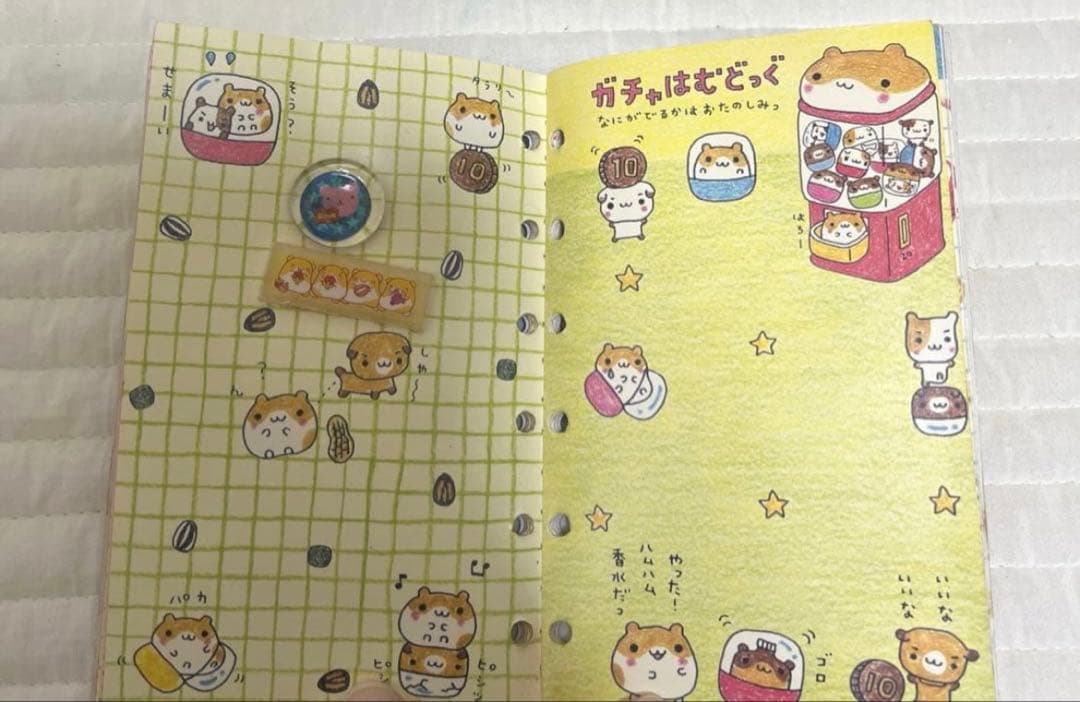 せまーい
そう？
タラリ〜
10
しゃー
？
ん
パカ
ピシ
ピシ
ガチャはむどっぐ
なにがでるかは おたのしみっ
10
はろー
10
やった！
ハムハム
香水だっ
ゴロ
いいな
いいな
10